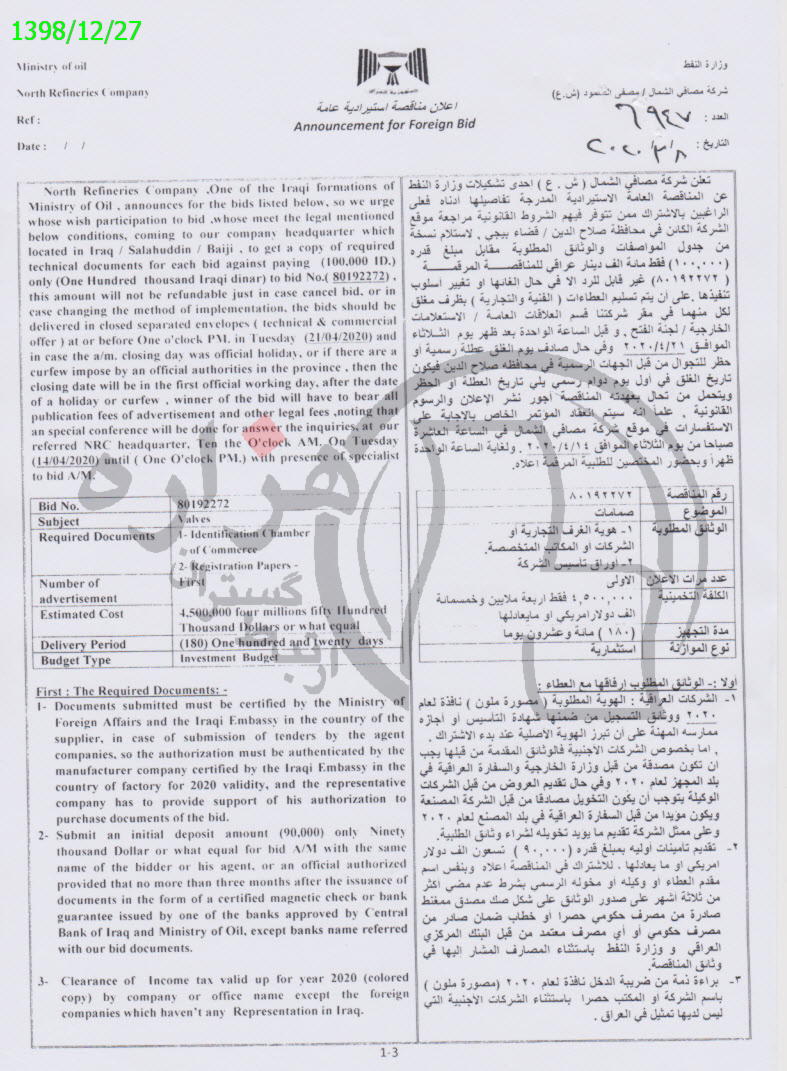 1398/12/27
Ministry of oil
North Refineries Company
Ref :
Date : / /
اعلان مناقصة استيرادية عامة
Announcement for Foreign Bid
وزارة النفط
شركة مصافي الشمال / مصفى الصمود (ش.ع)
العدد : ٦٩٤٧
التاريخ : ٢٠٢٠/٣/٨
North Refineries Company ,One of the Iraqi formations of
Ministry of Oil , announces for the bids listed below, so we urge
whose wish participation to bid ,whose meet the legal mentioned
below conditions, coming to our company headquarter which
located in Iraq / Salahuddin / Baiji , to get a copy of required
technical documents for each bid against paying (100,000 ID.)
only (One Hundred thousand Iraqi dinar) to bid No.( 80192272) ,
this amount will not be refundable just in case cancel bid, or in
case changing the method of implementation, the bids should be
delivered in closed separated envelopes ( technical & commercial
offer ) at or before One o'clock PM. in Tuesday (21/04/2020) and
in case the a/m. closing day was official holiday, or if there are
curfew imposed by an official authorities in the province , then the
closing date will be in the first official working day, after the date
of a holiday or curfew , winner of the bid will have to bear all
publication fees of advertisement and other legal fees ,noting that
an special conference will be done for answer the inquiries, at our
referred NRC headquarter, Ten the O'clock AM. On Tuesday
(14/04/2020) until ( One O'clock PM.) with presence of specialist
to bid A/M.
تعلن شركة مصافي الشمال ( ش . ع ) احدى تشكيلات وزارة النفط
عن المناقصة العامة الاستيرادية المدرجة تفاصيلها ادناه فعلى
الراغبين بالاشتراك ممن تتوفر فيهم الشروط القانونية مراجعة موقع
الشركة الكائن في محافظة صلاح الدين / قضاء بيجي , لاستلام نسخة
من جدول المواصفات والوثائق المطلوبة مقابل مبلغ قدره
(١٠٠,٠٠٠) فقط مائة الف دينار عراقي للمناقصة المرقمة
( ٨٠١٩٢٢٧٢) غير قابل للرد الا في حال الغائها او تغيير أسلوب
تنفيذها .على ان يتم تسليم العطاءات ( الفنية والتجارية ) بظرف مغلق
لكل منهما في مقر شركتنا قسم العلاقات العامة / الاستعلامات
الخارجية / لجنة الفتح , و قبل الساعة الواحدة بعد ظهر يوم الثلاثاء
الموافق ٢٠٢٠/٤/٢١ وفي حال صادف يوم الغلق عطلة رسمية او
حظر للتجوال من قبل الجهات الرسمية في محافظة صلاح الدين فيكون
تاريخ الغلق في اول يوم دوام رسمي يلي تاريخ العطلة او الحظر
ويتحمل من تحال بعهدته المناقصة أجور نشر الإعلان والرسوم
القانونية , علما انه سيتم انعقاد المؤتمر الخاص بالإجابة على
الاستفسارات في موقع شركة مصافي الشمال في الساعة العاشرة
صباحا من يوم الثلاثاء الموافق ٢٠٢٠/٤/١٤ . ولغاية الساعة الواحدة
ظهراً وبحضور المختصين للطلبية المرقمة اعلاه.
Bid No. 80192272
Subject Valves
Required Documents 1- Identification Chamber
of Commerce
2- Registration Papers -
Number of First
advertisement
Estimated Cost 4,500,000 four millions fifty Hundred
Thousand Dollars or what equal
Delivery Period (180) One hundred and twenty days
Budget Type Investment Budget
رقم المناقصة ٨٠١٩٢٢٧٢
الموضوع صمامات
الوثائق المطلوبة ١- هوية الغرف التجارية او
الشركات او المكاتب المتخصصة.
٢- اوراق تاسيس الشركة
عدد مرات الاعلان الاولى
الكلفة التخمينية ٤,٥٠٠,٠٠٠ فقط اربعة ملايين وخمسمائة
الف دولارامريكي او مايعادلها
مدة التجهيز (١٨٠ ) مائة وعشرون يوما
نوع الموازنة استثمارية
First : The Required Documents: -
1- Documents submitted must be certified by the Ministry of
Foreign Affairs and the Iraqi Embassy in the country of the
supplier, in case of submission of tenders by the agent
companies, so the authorization must be authenticated by the
manufacturer company certified by the Iraqi Embassy in the
country of factory for 2020 validity, and the representative
company has to provide support of his authorization to
purchase documents of the bid.
2- Submit an initial deposit amount (90,000) only Ninety
thousand Dollar or what equal for bid A/M with the same
name of the bidder or his agent, or an official authorized
provided that no more than three months after the issuance of
documents in the form of a certified magnetic check or bank
guarantee issued by one of the banks approved by Central
Bank of Iraq and Ministry of Oil, except banks name referred
with our bid documents.
3- Clearance of Income tax valid up for year 2020 (colored
copy) by company or office name except the foreign
companies which haven't any Representation in Iraq.
اولا :- الوثائق المطلوب إرفاقها مع العطاء :
١- الشركات العراقية : الهوية المطلوبة ( مصورة ملون ) نافذة لعام
٢٠٢٠ ووثائق التسجيل من ضمنها شهادة التأسيس أو أجازه
ممارسه المهنة على أن تبرز الهوية الاصلية عند بدء الاشتراك .
, اما بخصوص الشركات الاجنبية فالوثائق المقدمة من قبلها يجب
ان تكون مصدقة من قبل وزارة الخارجية والسفارة العراقية في
بلد المجهز لعام ٢٠٢٠ وفي حال تقديم العروض من قبل الشركات
الوكيلة يتوجب أن يكون التخويل مصادقا من قبل الشركة المصنعة
ويكون مويدا من قبل السفارة العراقية في بلد المصنع لعام ٢٠٢٠
وعلى ممثل الشركة تقديم ما يويد تخويله لشراء وثائق الطلبية.
٢- تقديم تأمينات اوليه بمبلغ قدره (٩٠,٠٠٠ ) تسعون الف دولار
امريكي او ما يعادلها . للاشتراك في المناقصة اعلاه وبنفس اسم
مقدم العطاء او وكيله او مخوله الرسمي بشرط عدم مضي اكثر
من ثلاثة أشهر على صدور الوثائق على شكل صك مصدق ممغنط
صادرة من مصرف حكومي حصرا او خطاب ضمان صادر من
مصرف حكومي أو أي مصرف معتمد من قبل البنك المركزي
العراقي و وزارة النفط باستثناء المصارف المشار اليها في
وثائق المناقصة.
٣- براءة ذمة من ضريبة الدخل نافذة لعام ٢٠٢٠ (مصورة ملون )
باسم الشركة او المكتب حصرا باستثناء الشركات الأجنبية التي
ليس لديها تمثيل في العراق .
1-3
هزاره
گستران
ارتباط